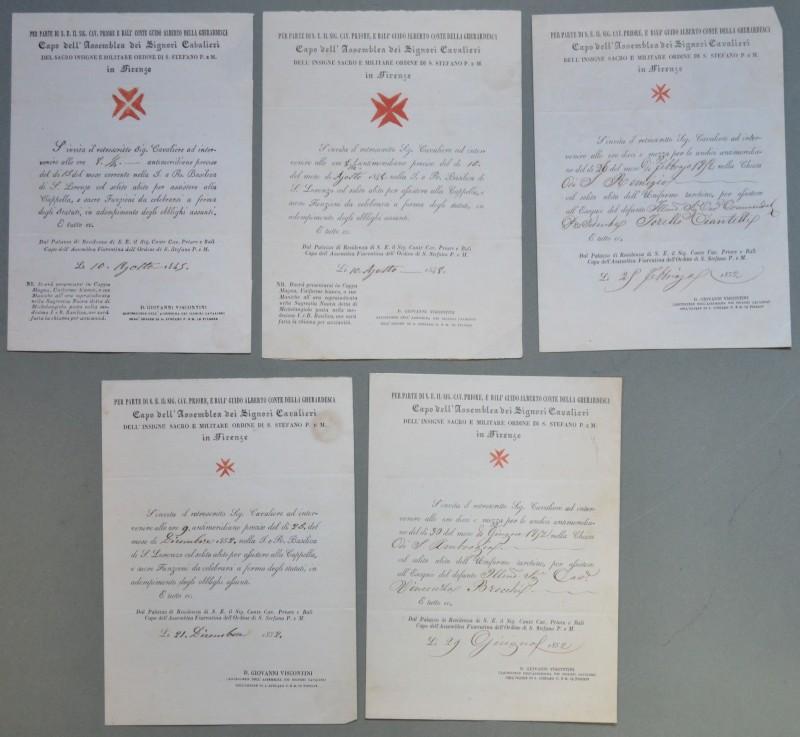 PER PARTE DI S. E. IL SIG. CAV. PRIORE, E BALI' GUIDO ALBERTO CONTE DELLA GHERARDESCA
Capo dell'Assemblea dei Signori Cavalieri
DEL SACRO INSIGNE E MILITARE ORDINE DI S. STEFANO P. e M.
in Firenze
S'invita il retroscritto Sig. Cavaliere ad inter-
venire alle ore 8. antimeridiane precise
del dì 15 del mese corrente nella I. e R. Basilica
di S. Lorenzo col solito abito per assistere alla
Cappella, e sacre Funzioni da celebrarsi a forma
degli Statuti, in adempimento degli obblighi assunti.
E tutto ec.
Dal Palazzo di Residenza di S. E. il Sig. Conte Cav. Priore e Balì
Capo dell'Assemblea Fiorentina dell'Ordine di S. Stefano P. e M.
Li 10. Agosto 1845.
NB. Dovrà presentarsi in Cappa
Magna, Uniforme bianco, e con
Maniche all'ora sopraindicata
nella Sagrestia Nuova detta di
Michelangiolo posta nella me-
desima I. e R. Basilica, ove sarà
fatta la chiama per anzianità.
D. GIOVANNI VISCONTINI
CANCELLIERE DELL'ASSEMBLEA DEI SIGNORI CAVALIERI
DELL'ORDINE DI S. STEFANO P. E M. IN FIRENZE
PER PARTE DI S. E. IL SIG. CAV. PRIORE, E BALI' GUIDO ALBERTO CONTE DELLA GHERARDESCA
Capo dell'Assemblea dei Signori Cavalieri
DELL'INSIGNE SACRO E MILITARE ORDINE DI S. STEFANO P. e M.
in Firenze
S'invita il retroscritto Sig. Cavaliere ad inter-
venire alle ore 8 antimeridiane precise del dì 10.
del mese di Agosto 1848. nella I. e R. Basilica di
S. Lorenzo col solito abito per assistere alla Cappella,
e sacre Funzioni da celebrarsi a forma degli statuti, in
adempimento degli obblighi assunti.
E tutto ec.
Dal Palazzo di Residenza di S. E. il Sig. Conte Cav. Priore e Balì
Capo dell'Assemblea Fiorentina dell'Ordine di S. Stefano P. e M.
Li 10. Agosto 1848.
NB. Dovrà presentarsi in Cappa
Magna, Uniforme bianco, e con
Maniche all'ora sopraindicata
nella Sagrestia Nuova detta di
Michelangiolo posta nella me-
desima I. e R. Basilica, ove sarà
fatta la chiama per anzianità.
D. GIOVANNI VISCONTINI
CANCELLIERE DELL'ASSEMBLEA DEI SIGNORI CAVALIERI
DELL'ORDINE DI S. STEFANO P. E M. IN FIRENZE
PER PARTE DI S. E. IL SIG. CAV. PRIORE, E BALI' GUIDO ALBERTO CONTE DELLA GHERARDESCA
Capo dell'Assemblea dei Signori Cavalieri
DELL'INSIGNE SACRO E MILITARE ORDINE DI S. STEFANO P. e M.
in Firenze
S'invita il retroscritto Sig. Cavaliere ad inter-
venire alle ore dieci e mezza per le undici antimeridia-
ne del dì 26 del mese di Febbrajo 1852 nella Chiesa
Di S. Remigio
col solito abito dell'Uniforme turchino, per assistere
all'Esequie del defunto Illmo. Sig. Cav. Commendatore
Torello Ciantelli
E tutto ec.
Dal Palazzo di Residenza di S. E. il Sig. Conte Cav. Priore e Balì
Capo dell'Assemblea Fiorentina dell'Ordine di S. Stefano P. e M.
Li 25 Febbrajo 1852
D. GIOVANNI VISCONTINI
CANCELLIERE DELL'ASSEMBLEA DEI SIGNORI CAVALIERI
DELL'ORDINE DI S. STEFANO P. E M. IN FIRENZE
PER PARTE DI S. E. IL SIG. CAV. PRIORE, E BALI' GUIDO ALBERTO CONTE DELLA GHERARDESCA
Capo dell'Assemblea dei Signori Cavalieri
DELL'INSIGNE SACRO E MILITARE ORDINE DI S. STEFANO P. e M.
in Firenze
S'invita il retroscritto Sig. Cavaliere ad inter-
venire alle ore 9 antimeridiane precise del dì 25. del
mese di Dicembre 1852. nella I. e R. Basilica
di S. Lorenzo col solito abito per assistere alla Cappella,
e sacre Funzioni da celebrarsi a forma degli statuti, in
adempimento degli obblighi assunti.
E tutto ec.
Dal Palazzo di Residenza di S. E. il Sig. Conte Cav. Priore e Balì
Capo dell'Assemblea Fiorentina dell'Ordine di S. Stefano P. e M.
Li 21. Dicembre 1852.
D. GIOVANNI VISCONTINI
CANCELLIERE DELL'ASSEMBLEA DEI SIGNORI CAVALIERI
DELL'ORDINE DI S. STEFANO P. E M. IN FIRENZE
PER PARTE DI S. E. IL SIG. CAV. PRIORE, E BALI' GUIDO ALBERTO CONTE DELLA GHERARDESCA
Capo dell'Assemblea dei Signori Cavalieri
DELL'INSIGNE SACRO E MILITARE ORDINE DI S. STEFANO P. e M.
in Firenze
S'invita il retroscritto Sig. Cavaliere ad inter-
venire alle ore dieci e mezza per le undici antimeridia-
ne del dì 30 del mese di Giugno 1852 nella Chiesa
Di S. Ambrogio
col solito abito dell'Uniforme turchino, per assistere
all'Esequie del defunto Illmo. Sig. Cav.
Vincenzio Brocchi
E tutto ec.
Dal Palazzo di Residenza di S. E. il Sig. Conte Cav. Priore e Balì
Capo dell'Assemblea Fiorentina dell'Ordine di S. Stefano P. e M.
Li 29 Giugno 1852
D. GIOVANNI VISCONTINI
CANCELLIERE DELL'ASSEMBLEA DEI SIGNORI CAVALIERI
DELL'ORDINE DI S. STEFANO P. E M. IN FIRENZE